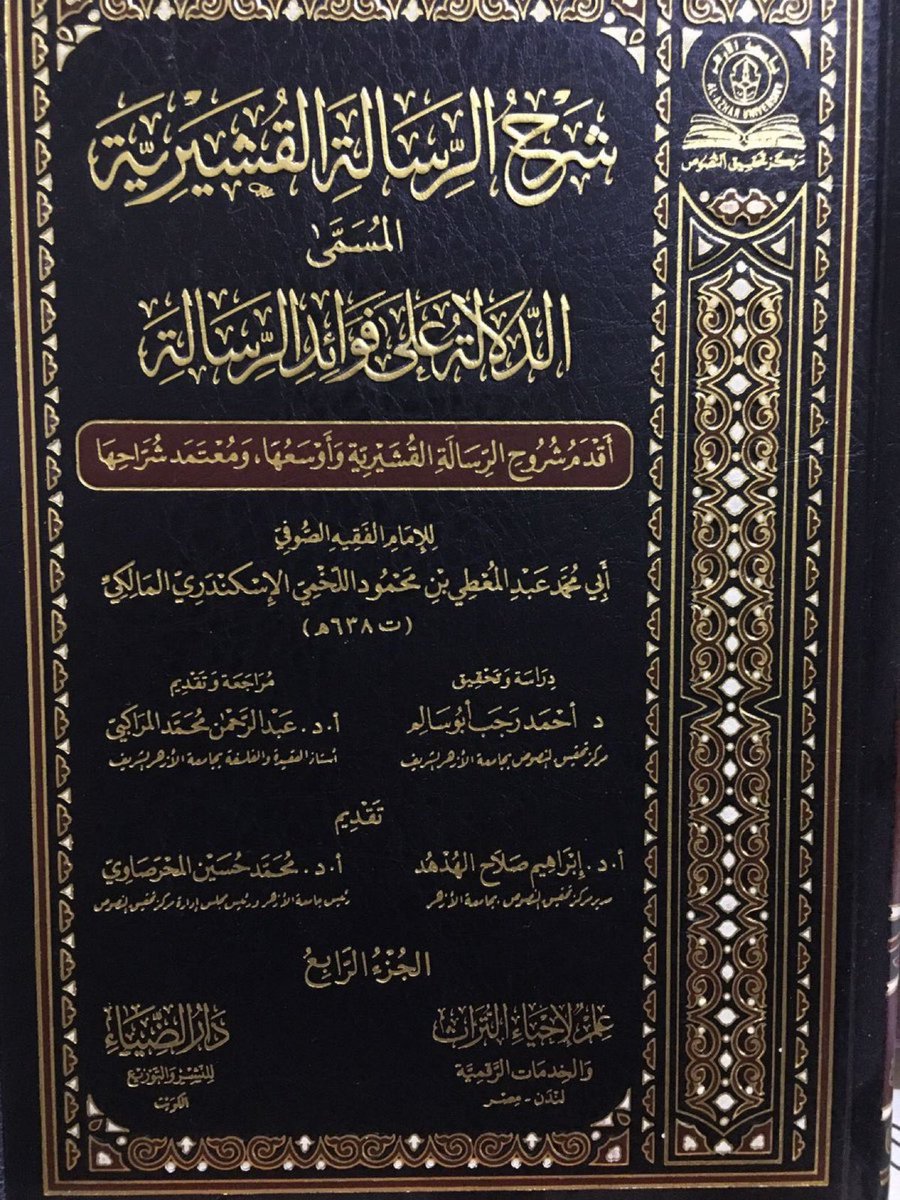 جامعة الأزهر
AL-AZHAR UNIVERSITY
مركز تحقيق النصوص
شَرْحُ الرِّسَالَةِ القُشَيْرِيَّةِ
المُسَمَّىٰ
الدَّلَالَةُ عَلَىٰ فَوَائِدِ الرِّسَالَةِ
أَقْدَمُ شُرُوحِ الرِّسَالَةِ القُشَيْرِيَّةِ وَأَوْسَعُهَا، وَمُعْتَمَدُ شُرَّاحِهَا
لِلإِمَامِ الفَقِيهِ الصُّوفِيِّ
أَبِي مُحَمَّد عَبْدِ المُعْطِي بْنِ مَحْمُودٍ اللَّخْمِيِّ الإِسْكَنْدَرِيِّ المَالِكِيِّ
(ت ٦٣٨ هـ)
دِرَاسَة وَتَحْقِيق
د أَحْمَد رَجَب أَبُو سَالِم
مركز تحقيق النصوص بجامعة الأزهر الشريف
مُرَاجَعَة وَتَقْدِيم
أ.د. عَبْد الرَّحْمٰن مُحَمَّد المَرَاكِبِي
أستاذ العقيدة والفلسفة بجامعة الأزهر الشريف
تَقْدِيم
أ.د. إِبْرَاهِيم صَلَاح الهُدْهُد
مدير مركز تحقيق النصوص بجامعة الأزهر
أ.د. مُحَمَّد حُسَيْن المَحْرَصَاوِيّ
رئيس جامعة الأزهر ورئيس مجلس إدارة مركز تحقيق النصوص
الجُزْءُ الرَّابِعُ
عِلْمٌ لِإِحْيَاءِ التُّرَاثِ
وَالخِدمَاتِ الرَّقمِيَّة
لندَن - مِصْر
دَارُ الضِّيَاءِ
لِلنَّشْرِ وَالتَّوْزِيع
الكُوَيْت